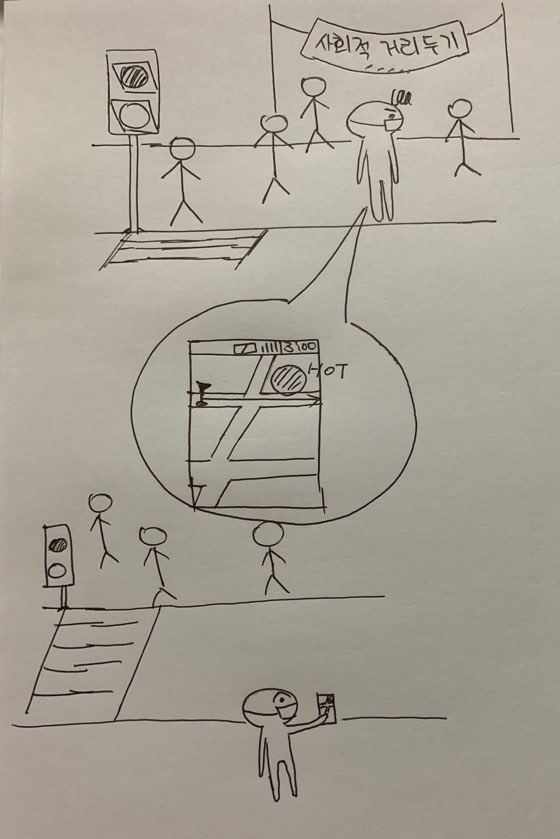 사회적 거리두기
3:00
HOT